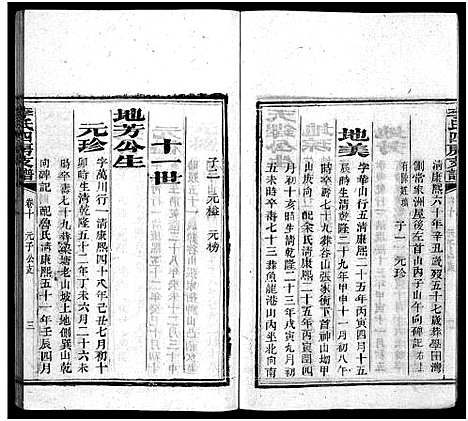 李氏四房支譜
清康熙六十年辛丑歲五十七歲葬學田灣
劉當家洲屋後左首山內子山午向碑記
子一 元珍
地美
字 山行五清康熙二十五年丙寅四月十五
亥時生清乾隆二十九年甲申十一月初八午
時卒壽七十九葬谷山張家衝下首神山坳甲
山庚向碑記配余氏清康熙二十五年丙寅
十月 時生清乾隆二十三年戊寅九月初
五未時卒壽七十三葬魚龍港山內坐北向南
子二 元梭 元榜
十一世
地芳公生
元珍
字萬川行一清康熙四十八年己丑七月初十
卯時生清乾隆五十二年丁未六月二十六未
時卒壽七十九葬 塘老山坡土地側巽山乾
向碑記配魯氏清康熙五十一年壬辰四月
李氏四房支譜
卷十 元子公支
三